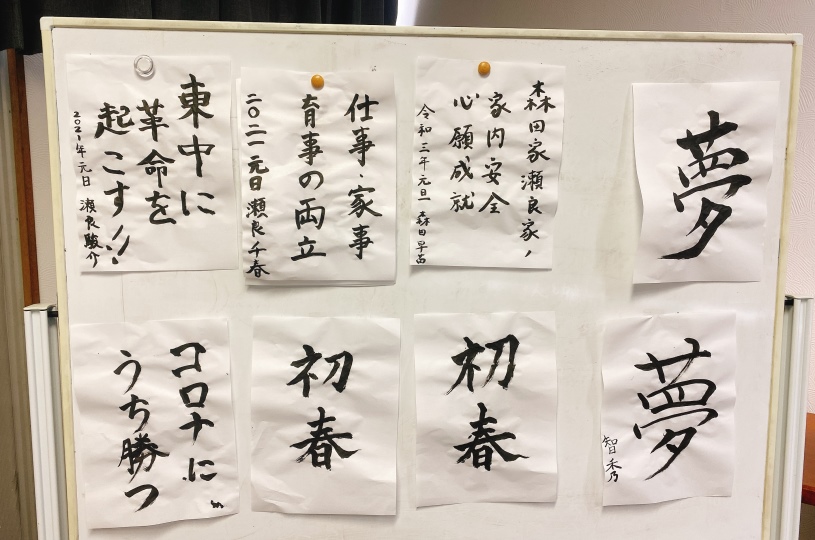 東中に
革命を
起こす!!
2021年元日 瀬良駿介
仕事・家事
育事の両立
二〇二一元日 瀬良千春
森田家瀬良家ノ
家内安全
心願成就
令和三年元旦 森田早苗
夢
コロナに
うち勝つ
初春
初春
夢
智秀